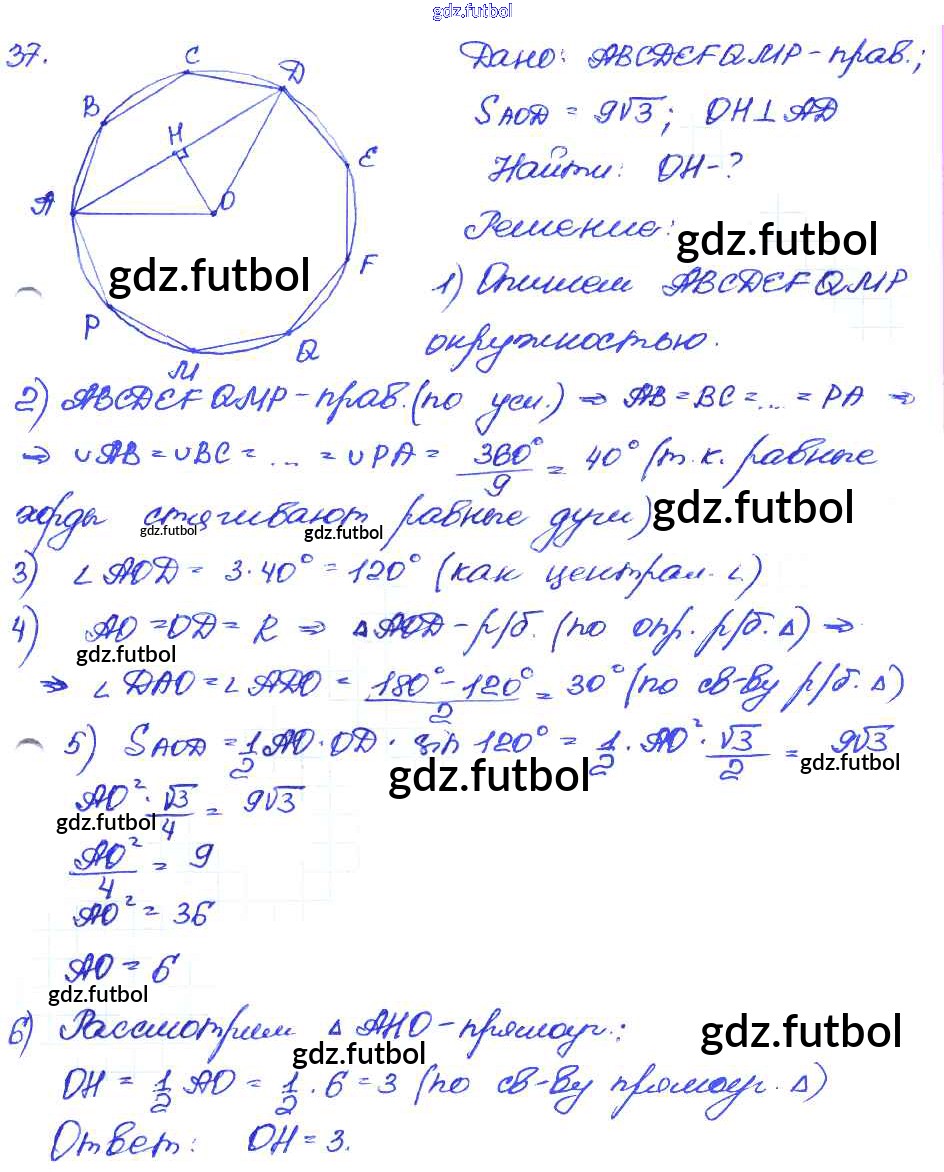 gdz.futbol
37.
C
D
B
H
E
A
O
F
P
M
Q
gdz.futbol
Дано: ABCDEFQMP - прав.;
S AOD = 9√3; OH⊥AD
Найти: OH-?
Решение:
gdz.futbol
1) Опишем ABCDEFQMP
окружностью.
2) ABCDEFQMP - прав. (по усл.) ⇒ AB = BC = ... = PA ⇒
⇒ ∪AB = ∪BC = ... = ∪PA = 360°/9 = 40° (т.к. равные
хорды стягивают равные дуги)
gdz.futbol
gdz.futbol
gdz.futbol
3) ∠AOD = 3·40° = 120° (как централ. ∠)
4) AO = OD = R ⇒ △AOD - р/б. (по опр. р/б. △) ⇒
gdz.futbol
⇒ ∠DAO = ∠ADO = (180° - 120°)/2 = 30° (по св-ву р/б. △)
5) S AOD = 1/2 AO · OD · sin 120° = 1/2 · AO² · √3/2 = 9√3
gdz.futbol
gdz.futbol
AO² · √3/4 = 9√3
gdz.futbol
AO²/4 = 9
AO² = 36
AO = 6
gdz.futbol
6) Рассмотрим △ AHO - прямоуг.:
gdz.futbol
gdz.futbol
OH = 1/2 AO = 1/2 · 6 = 3 (по св-ву прямоуг. △)
Ответ: OH = 3.